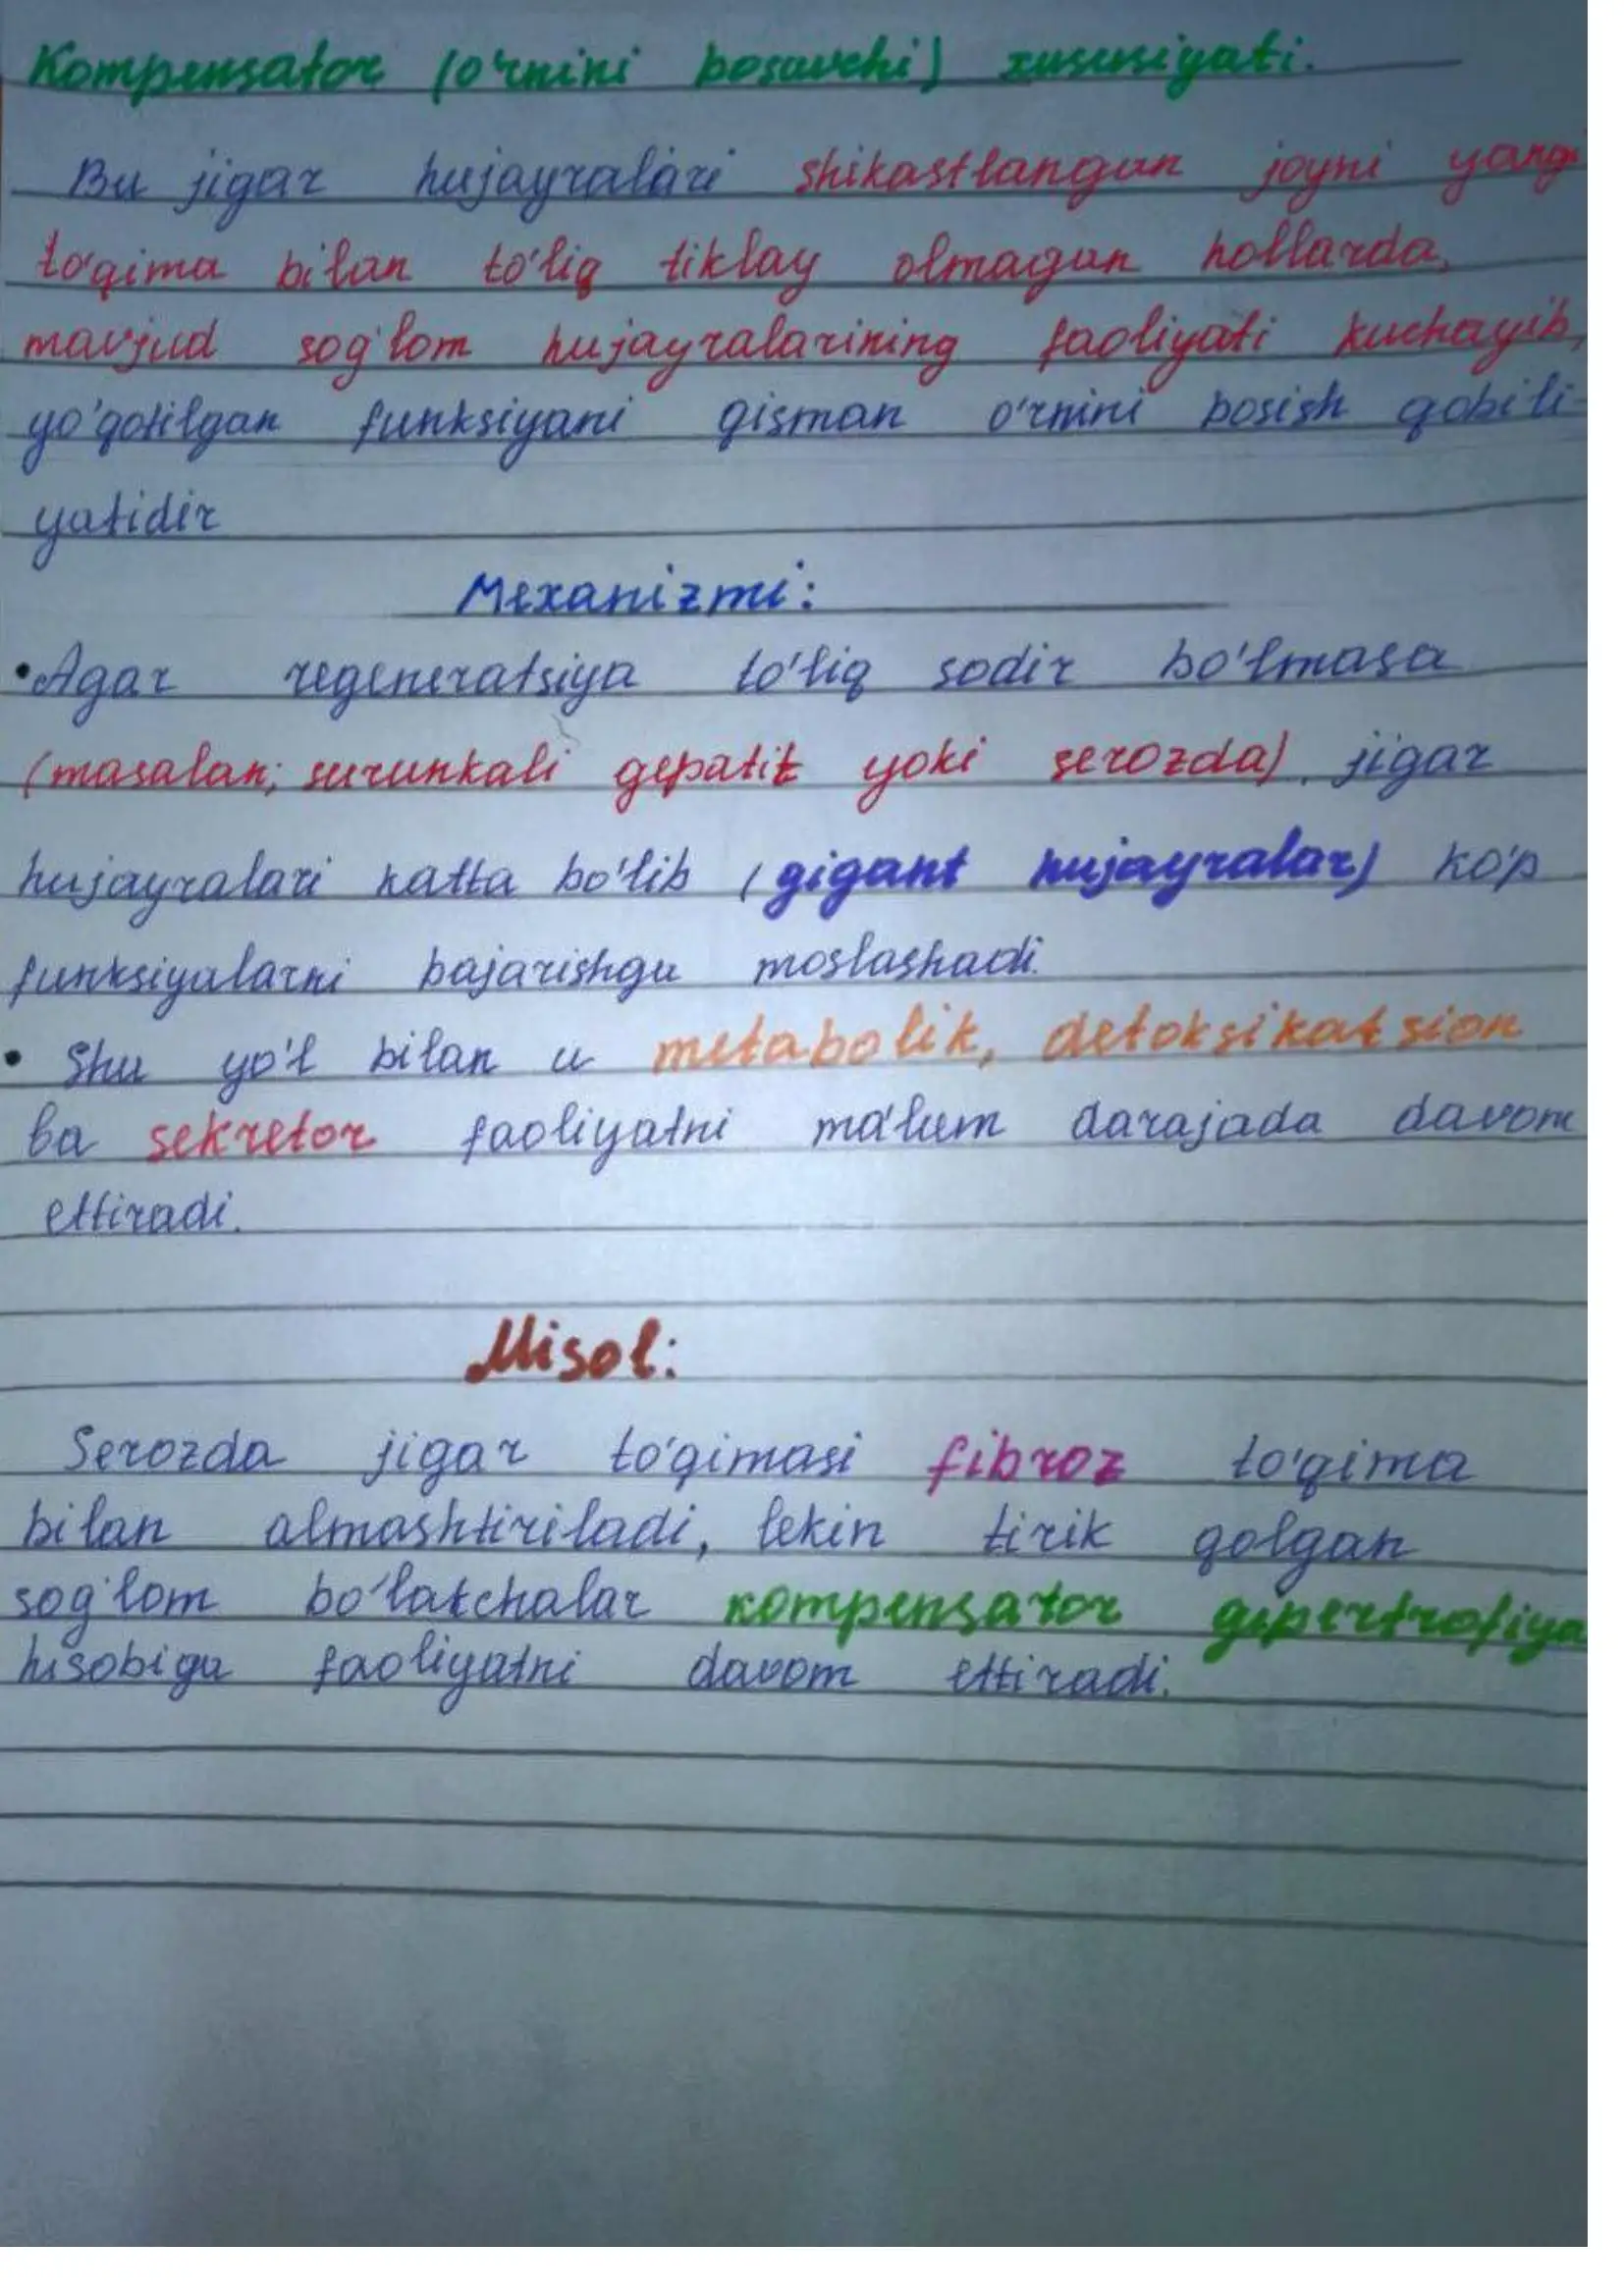 Kompensator (o'rnini bosuvchi) xususiyati.
Bu jigar hujayralari shikastlangan joyni yangi
to'qima bilan to'liq tiklay olmagan hollarda,
mavjud sog'lom hujayralarining faoliyati kuchayib,
yo'qotilgan funksiyani qisman o'rnini bosish qobili-
yatidir
Mexanizmi:
• Agar regeneratsiya to'liq sodir bo'lmasa
(masalan; surunkali gepatit yoki serozda), jigar
hujayralari katta bo'lib (gigant hujayralar) ko'p
funksiyalarni bajarishga moslashadi.
• Shu yo'l bilan u metabolik, detoksikatsion
va sekretor faoliyatni ma'lum darajada davom
ettiradi.
Misol:
Serozda jigar to'qimasi fibroz to'qima
bilan almashtiriladi, lekin tirik qolgan
sog'lom bo'lakchalar kompensator gipertrofiya
hisobiga faoliyatni davom ettiradi.